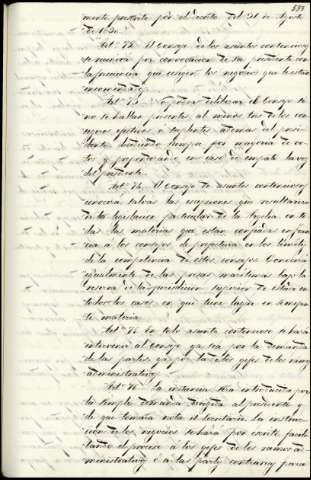 mente prescrito por el decreto del 21 de Agosto
de 18
Art. 72. El Consejo de los asuntos contenciosos
se reunira por convocatoria de su presidente con
la frecuencia que exijan los negocios que le estan
encomendados
Art. 73. No podra deliberar el Consejo si
no se hallan presentes, al menos tres de los con-
sejeros efectivos o suplentes, ademas del presi-
dente, decidiendo siempre por mayoria de vo-
tos y preponderando en caso de empate la voz
del presidente.
Art. 74. El consejo de asuntos contenciosos
conocerá salvas las escepciones que resultaran
de la legislacion particular de la Argelia, en to-
das las materias que estan confiadas en fran-
cia a los consejos de prefectura en los limites
de la competencia de estos consejos. Conocerá
igualmente de las presas maritimas bajo la
reserva de la jurisdiccion superior de estado en
todos los casos en que tiene lugar en semejan-
te materia.
Art. 75. En todo asunto contencioso se hará
intervenir al consejo ya sea por la demanda
de las partes ya por la de los gefes de los ramos
administrativos
Art. 76. La instancia sera introducida por
la simple demanda dirigida al presidente, y
de que tomará nota el secretario. La instruc-
cion de los negocios se hará por escrito facili-
tando el proceso á los gefes de los ramos ad-
ministrativos ó á las partes contrarias para